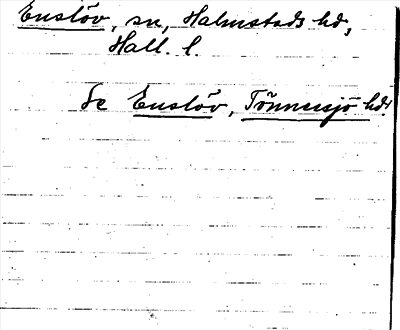 Enslöv, sn, Halmstads hd,
Hall. l.
Se Enslöv, Tönnersjö hd.